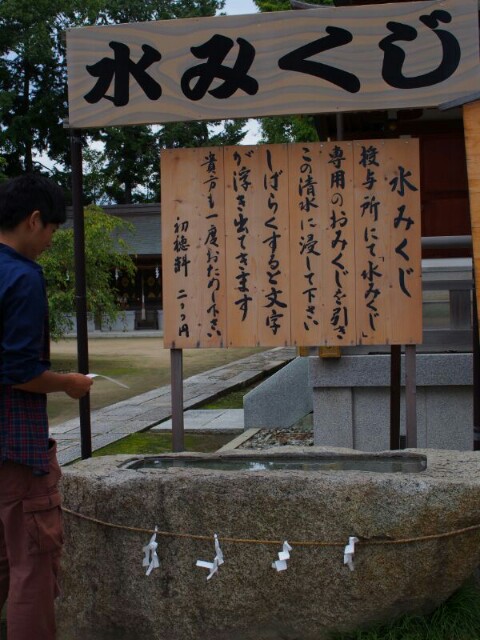 水みくじ
水みくじ
授与所にて「水みくじ」
専用のおみくじを引き
この清水に浸して下さい
しばらくすると文字
が浮き出てきます
貴方も一度おためし下さい
初穂料 二〇〇円